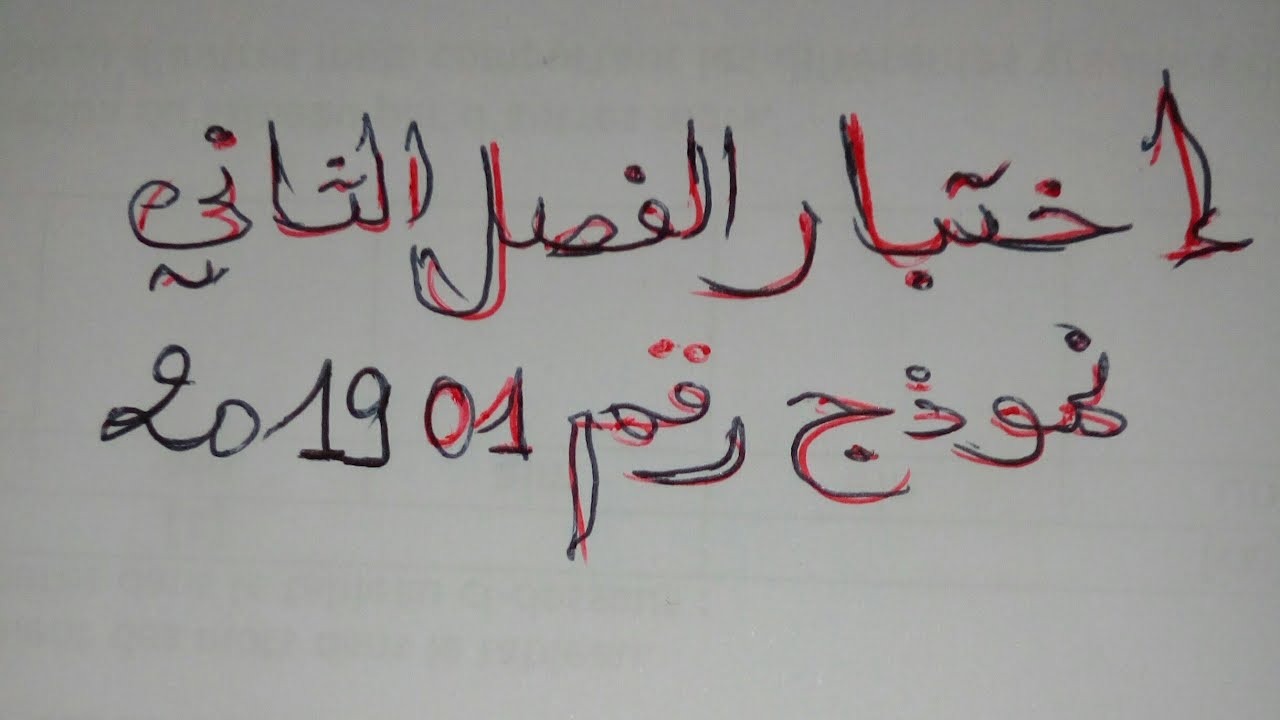 إختبار الفصل الثاني
نموذج رقم 01 2019